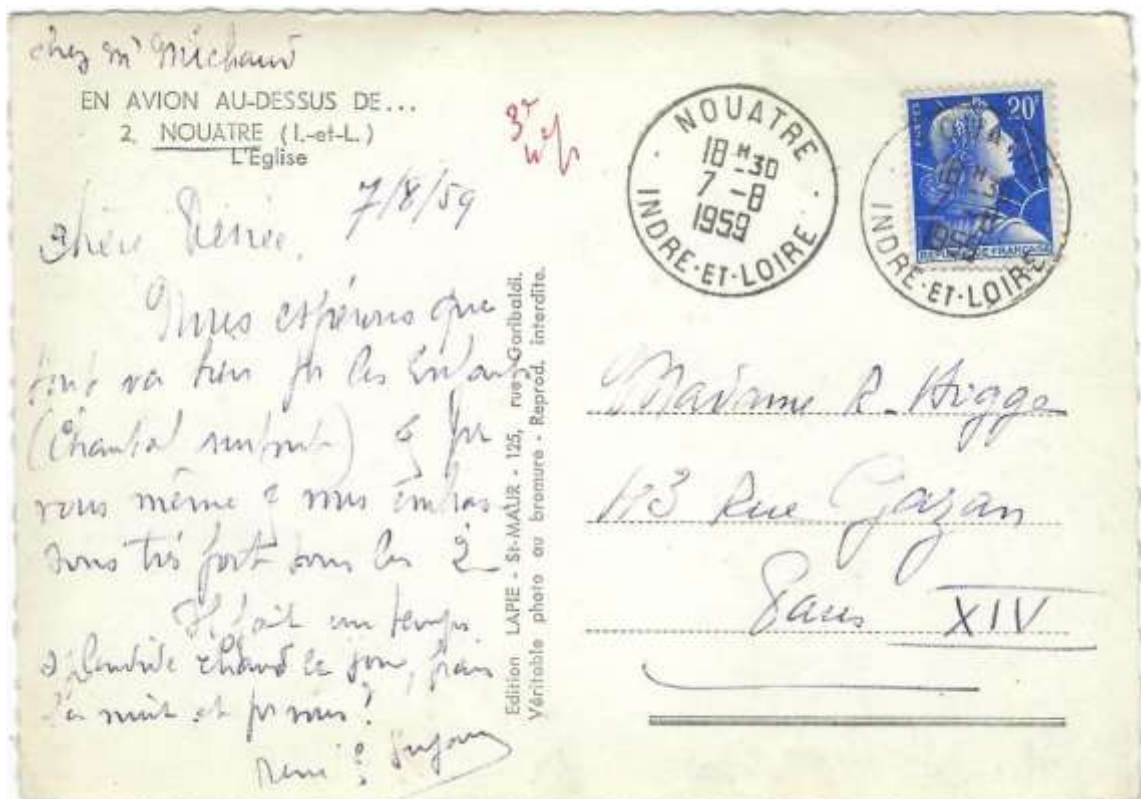 chez Mr Michaud
EN AVION AU-DESSUS DE...
2. NOUATRE (I.-et-L.)
L'Eglise
7/8/59
chère
Nous espérons que
tout va bien pr les Enfants
(Chantal surtout) & pr
vous même & nous embras
sons très fort tous les 2
Il fait un temps
splendide chaud le jour, frais
la nuit. et pr vous?
René &
Edition LAPIE - St-MAUR - 125, rue Garibaldi.
Véritable photo au bromure - Reprod. interdite.
NOUATRE
18 H 30
7 -8
1959
INDRE-ET-LOIRE
POSTES
20F
REPUBLIQUE FRANÇAISE
1959
INDRE-ET-LOIRE
Madame R. Higgs
Rue Gazan
Paris XIV